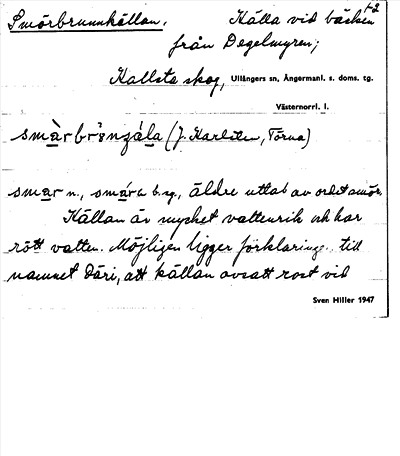 1-2
Smörbrunnkällan. Källa vid bäcken
från Degelmyren;
Kallsta skog, Ullångers sn, Ångermanl. s. doms. tg.
Västernorrl. l.
(J. Karlsten, Torna)
smar n., smára b. sg., äldre uttal av ordet smör.
Källan är mycket vattenrik och har
rött vatten. Möjligen ligger förklaringen till
namnet däri, att källan avsatt rost vid
Sven Hiller 1947